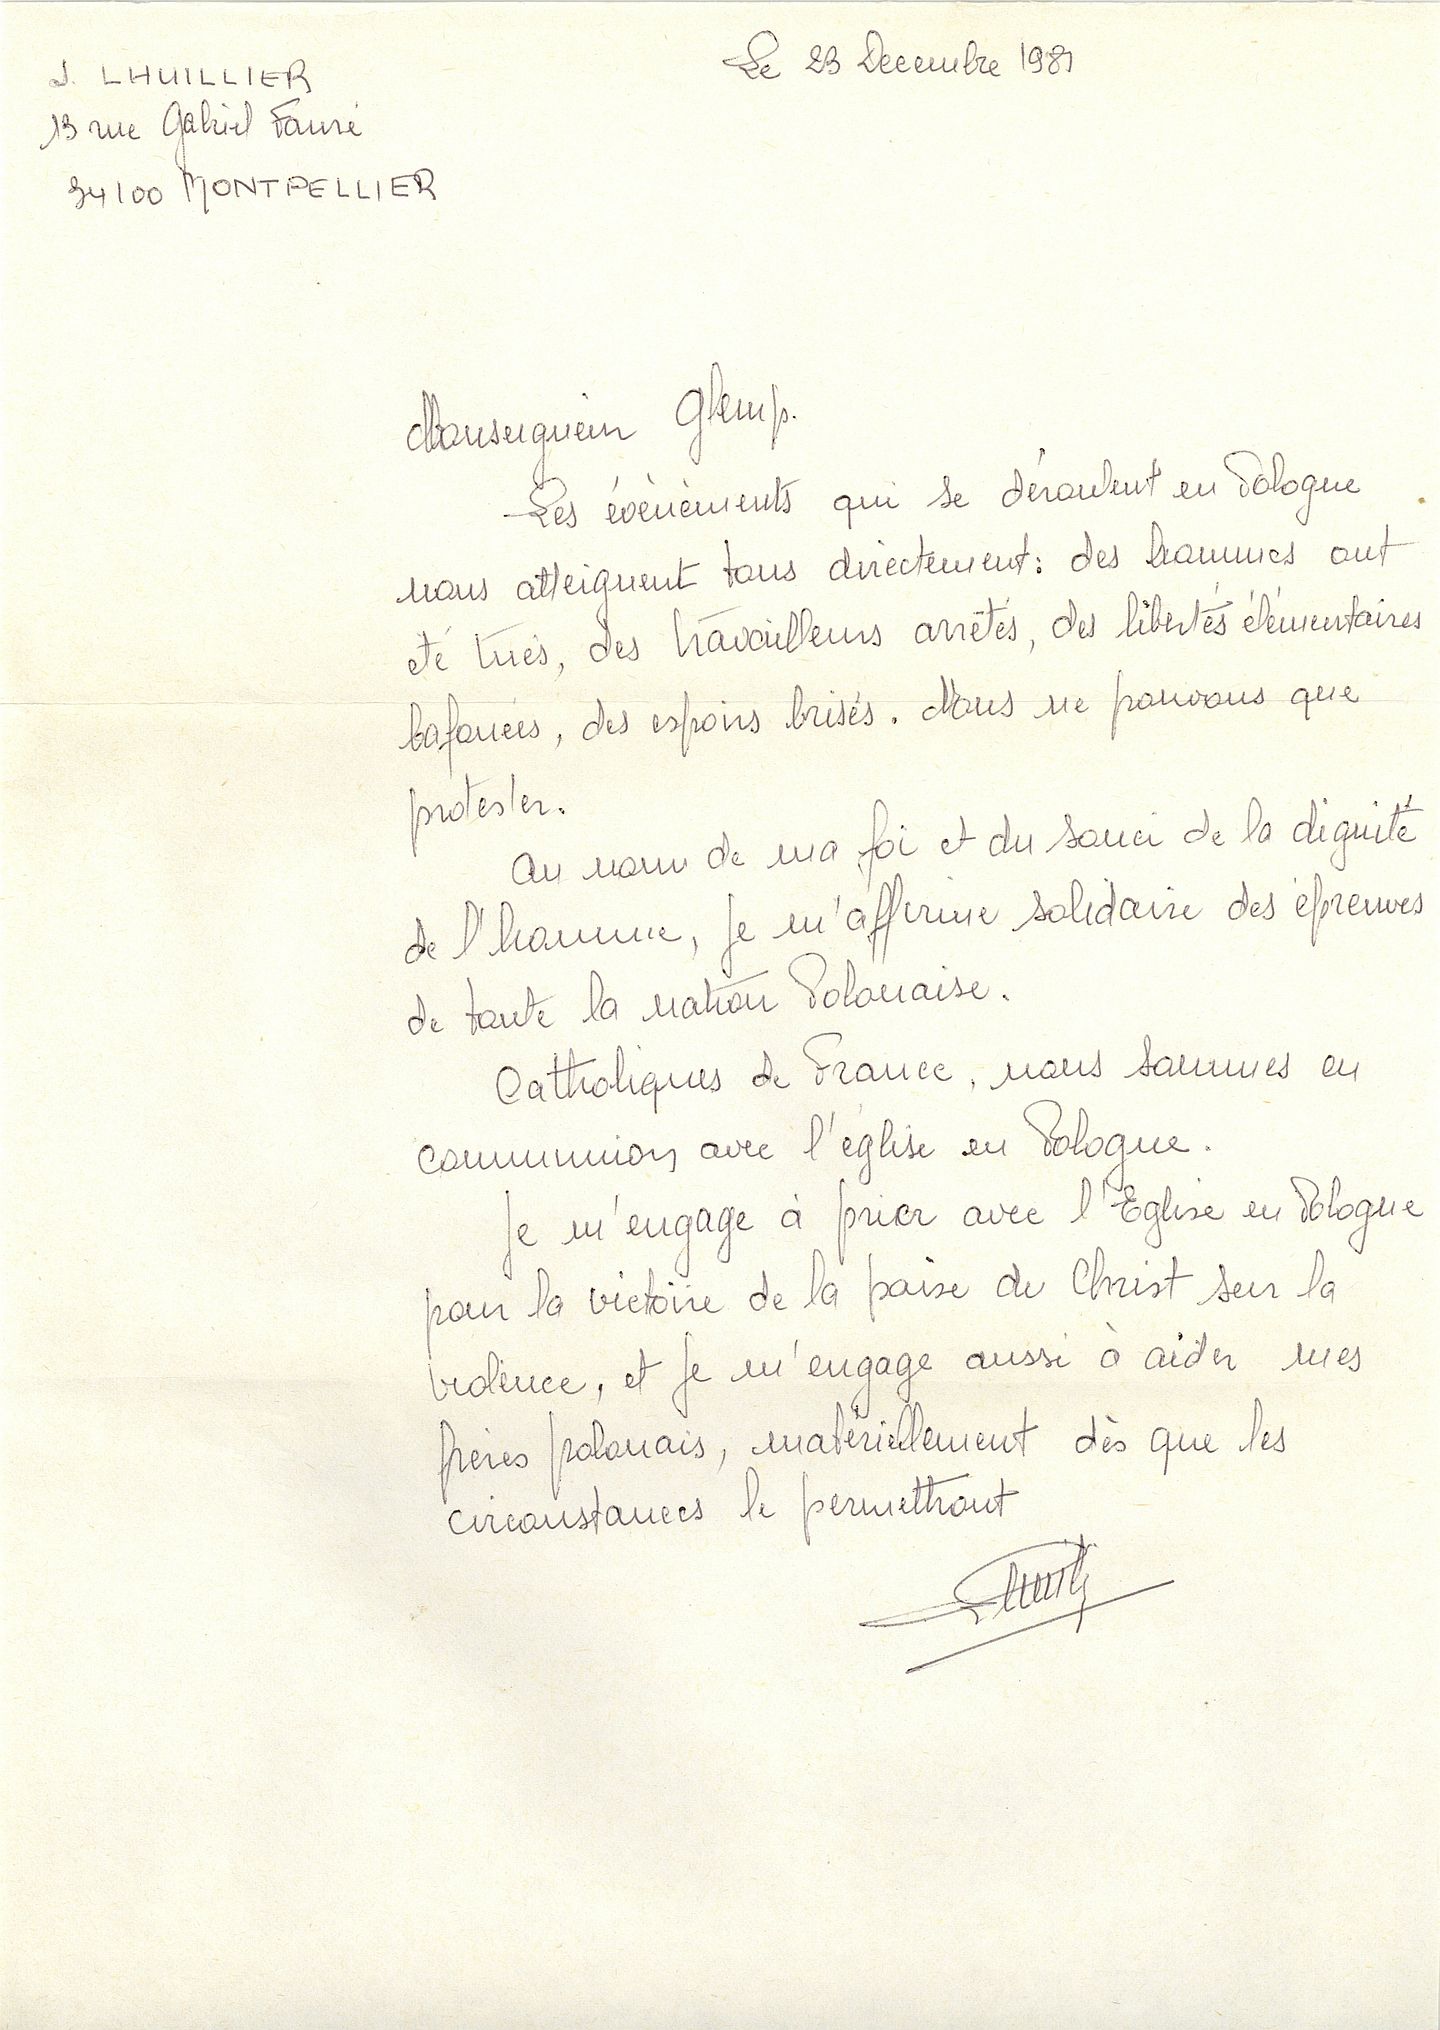 J. LHUILLIER
13 rue Gabriel Fauré
34100 MONTPELLIER
Le 23 Decembre 1981
Monseigneur Glemp.
Les évènèments qui se déroulent en Pologne
nous atteignent tous directement : des hommes ont
été tués, des travailleurs arrêtés, des libertés élémentaires
bafouées, des espoirs brisés. Nous ne pouvons que
protester.
Au nom de ma foi et du souci de la dignité
de l'homme, je m'affirme solidaire des épreuves
de toute la nation Polonaise.
Catholiques de France, nous sommes en
communion avec l'église en Pologne.
Je m'engage à prier avec l'Eglise en Pologne
pour la victoire de la paix du Christ sur la
violence, et je m'engage aussi à aider mes
frères polonais, matériellement dès que les
circonstances le permettront